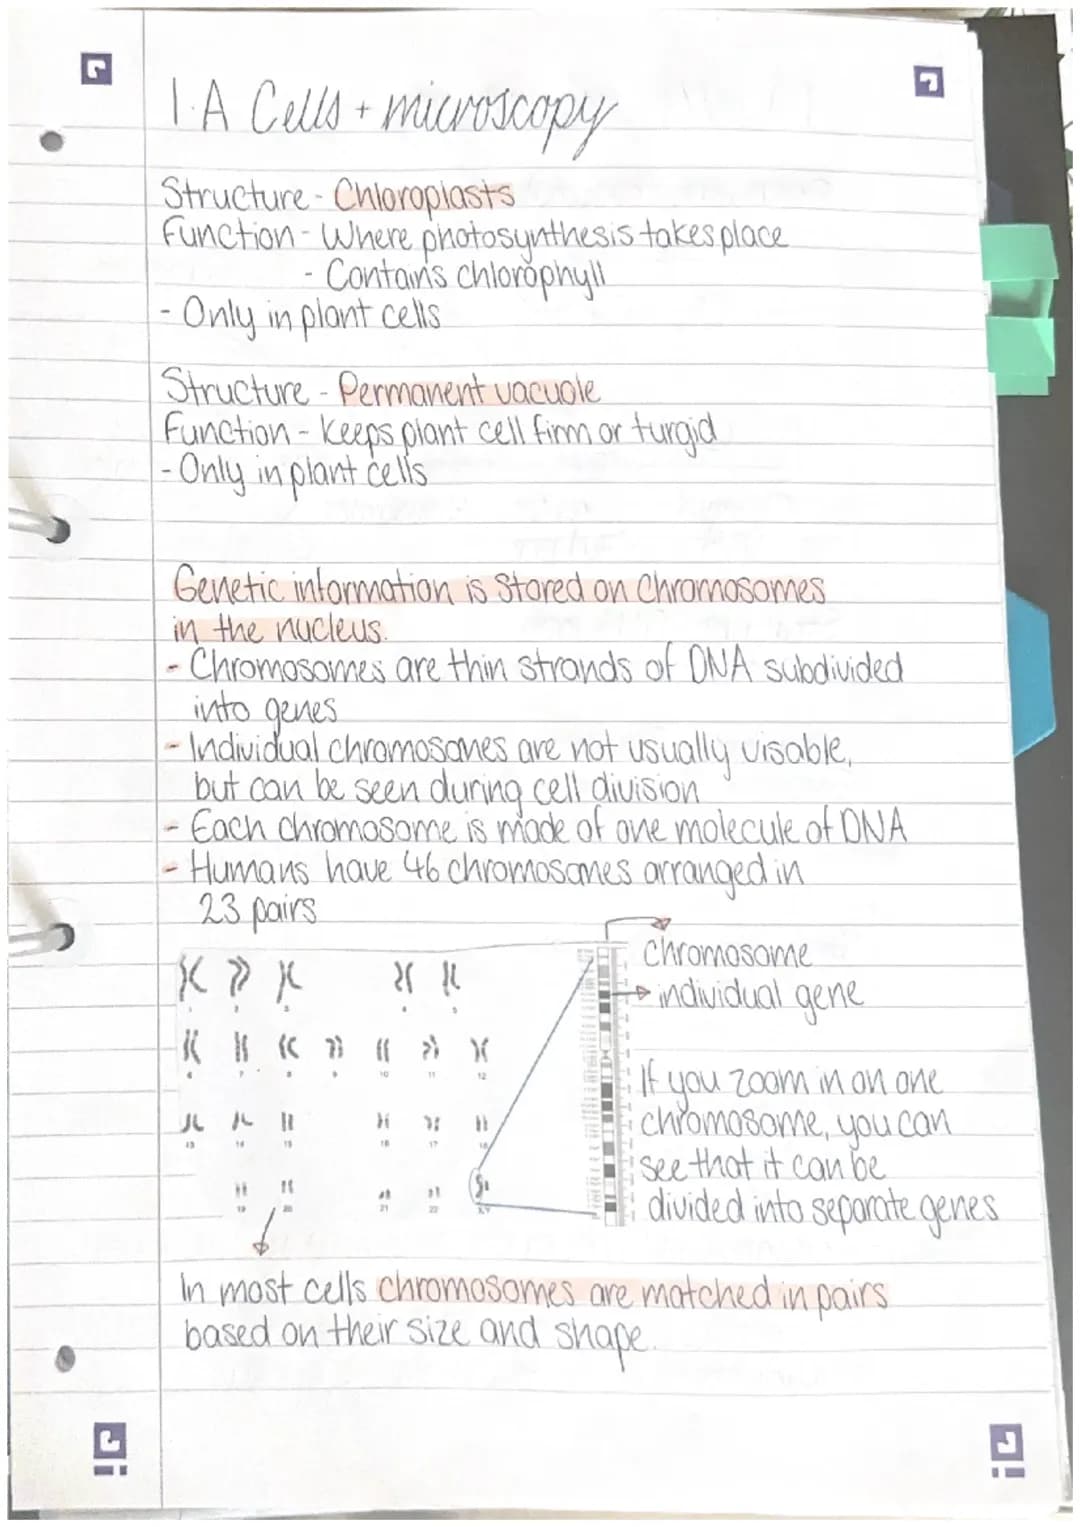 1.A Cells + microscopy
Structure - Chloroplasts
Function - Where photosynthesis takes place
- Contains chlorophyll
- Only in plant cells
Structure - Permanent vacuole
Function - keeps plant cell firm or turgid
- Only in plant cells
Genetic information is stored on chromosomes
in the nucleus.
- Chromosomes are thin strands of DNA subdivided
into genes
- Individual chromosomes are not usually visable,
but can be seen during cell division
- Each chromosome is made of one molecule of DNA
- Humans have 46 chromosomes arranged in
23 pairs
chromosome
individual gene
1 2 3 4 5
6 7 8 9 10 11 12
13 14 15 16 17 18
19 20 21 22 X,Y
If you zoom in on one
chromosome, you can
see that it can be
divided into separate genes
In most cells chromosomes are matched in pairs
based on their size and shape.